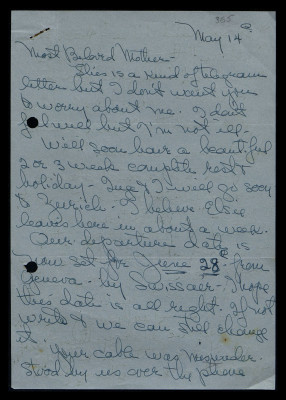 365
May 14th
Most Beloved Mother-
This is a kind of telegram
letter but I don't want you
to worry about me. I don't
feel well but I'm not ill-
We'll soon have a beautiful
2 or 3 week complete rest &
holiday- Inge & I will go soon
to Zurich. I believe Elsie
leaves here in about a week.
Our departure date is
now set for June 28th from
Geneva- by Swissair- I hope
this date is all right. If not
write & we can still change
it.
Your cable was misunder-
stood by us over the phone